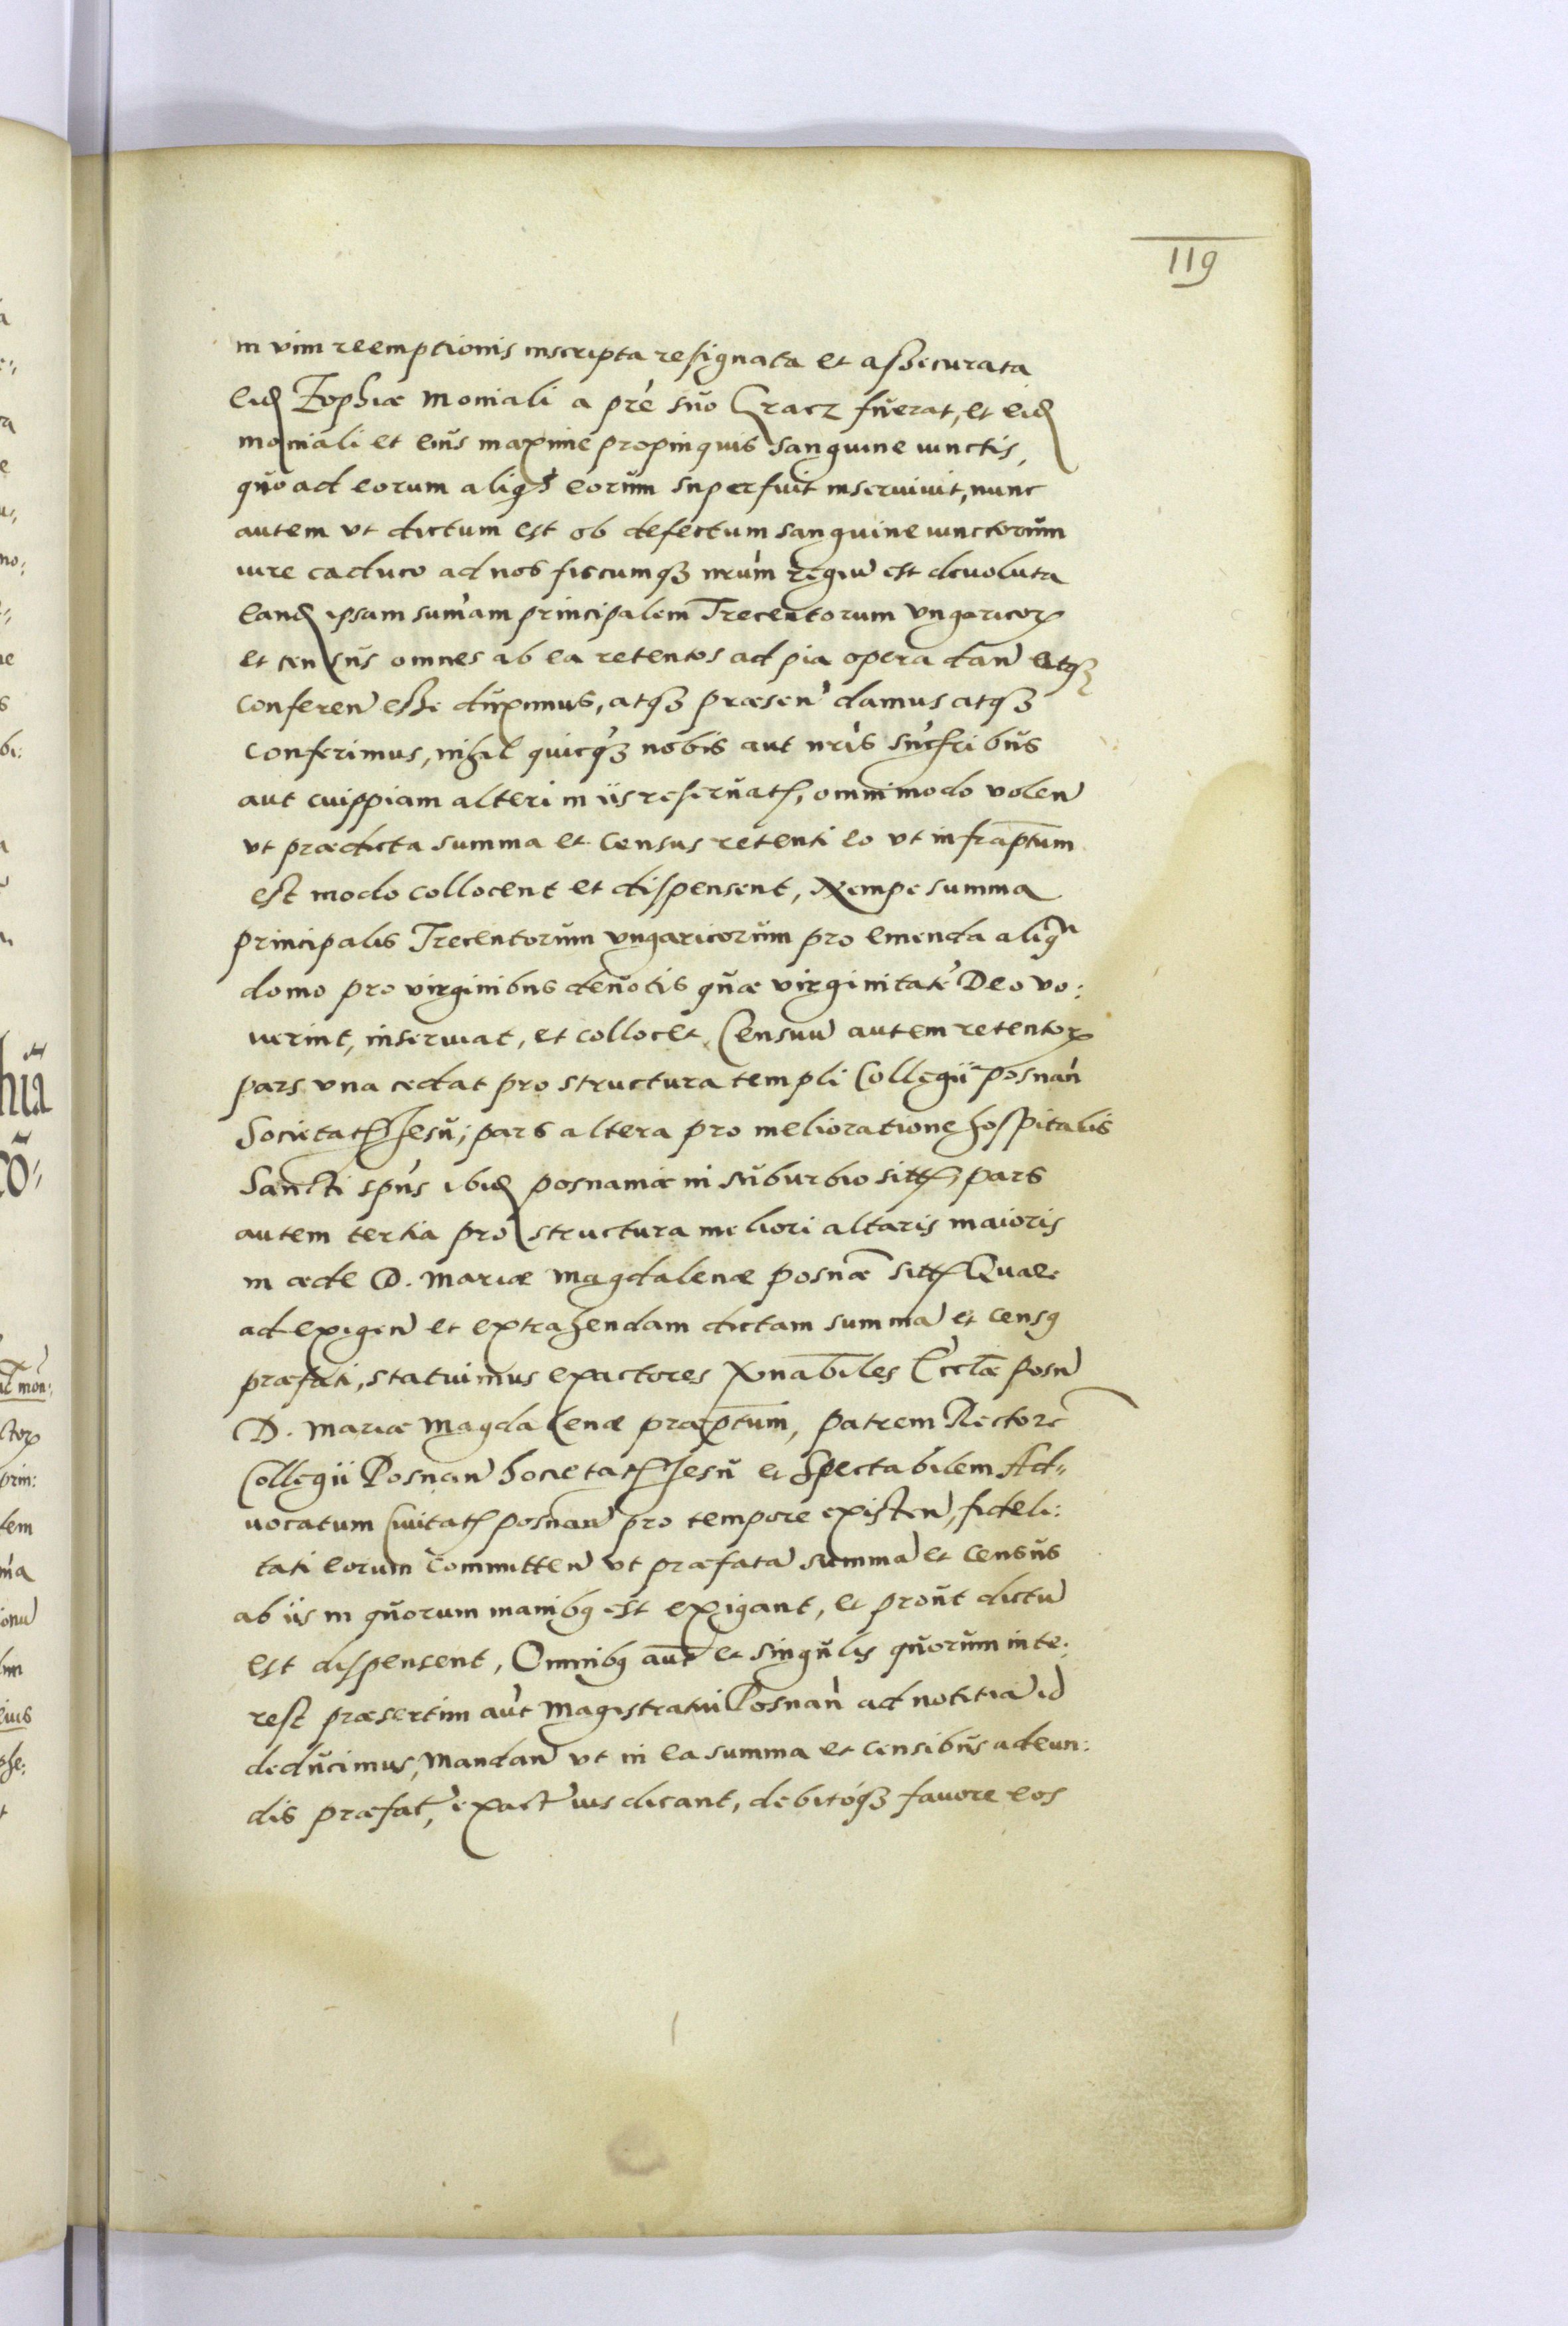 119
in vim reemptionis inscripta resignata et assecurata
eid Zophiæ Moniali a pre suo Gracz fuerat, et eid
moniali et eius maxime propinquis sanguine iunctis,
quoad eorum aliqs eorum superfuit inservivit, nunc
autem vt dictum est ob defectum sanguine iunctorum
iure caduco ad nos fiscumq3 nrum regiu est devoluta
eand ipsam sumam principalem Trecentorum vngaricor
et census omnes ab ea retentos ad pia opera dan atq3
conferen esse duximus, atq3 præsen damus atq3
conferimus, nihil quicq3 nobis aut nris sucfribus
aut cuippiam alteri in iis reservat, omnimodo volen
vt prædicta summa et census retenti eo vt infraptum
est modo collocent et dispensent, Nempe summa
principalis Trecentorum vngaricorum pro emenda aliqa
domo pro virginibus devotis quæ virginitate Deo vo:
verint, inserviat, et collocet, Censuu autem retentor
pars vna cedat pro structura templi Collegii Posnan
Societat Jesu; pars altera pro melioratione hospitalis
Sancti spus ibid posnaniæ in suburbio sitt, pars
autem tertia pro structura meliori altaris maioris
in æde D. Mariæ Magdalenæ posnæ sitt, Quare
ad exigen et extrahendam dictam summa et censq
præfati, statuimus exactores Honabiles Ecclæ posn
D. Mariæ Magdalenæ præptum, patrem Rectore
Collegii Posnan Societat Jesu et Spectabilem Ad„
vocatum Civitat posnan pro tempore existen, fideli:
tati eorum committen vt præfata summa et census
ab iis in quorum manibq est exigant, et prout dictu
est dispensent, Omnibq aut et singulis quorum inte:
rest præsertim aut Magistratui Posnan ad notitia id
deducimus, Mandan vt in ea summa et censibus adeun:
dis præfat, exact ius dicant, debitoq3 favore eos